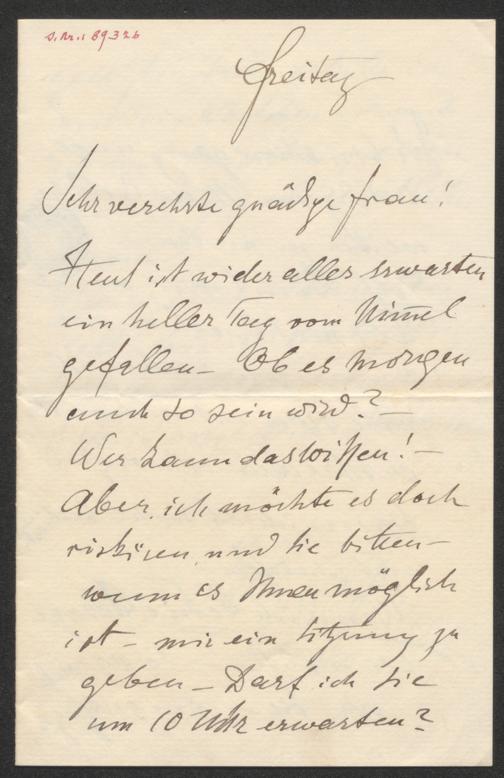 S.Nr.: 89326
Freitag
Sehr verehrte gnädige Frau!
Heut ist wider alles Erwarten
ein heller Tag vom Himel
gefallen – Ob es morgen
auch so sein wird? –
Wer kann das wissen! –
Aber ich möchte es doch
riskiren und Sie bitten –
wenn es Ihnen möglich
ist – mir ein Sitzung zu
geben – Darf ich Sie
um 10 Uhr erwarten?